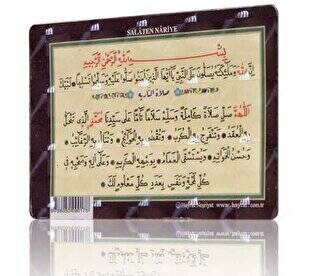 SALÂTEN NÂRİYE
بِسْمِ اللهِ الرَّحْمٰنِ الرَّحِيمِ
اِنَّ اللهَ وَمَلٰئِكَتَهُ يُصَلُّونَ عَلَى النَّبِيِّ يَا اَيُّهَا الَّذِينَ اٰمَنُوا صَلُّوا عَلَيْهِ وَسَلِّمُوا تَسْلِيمًا لَبَّيْكَ
صلاة النارية
اَللّٰهُمَّ صَلِّ صَلَاةً كَامِلَةً وَسَلِّمْ سَلَامًا تَامًّا عَلٰى سَيِّدِنَا مُحَمَّدٍ الَّذِي تَنْحَلُّ
بِهِ الْعُقَدُ وَتَنْفَرِجُ بِهِ الْكُرَبُ وَتُقْضٰى بِهِ الْحَوَائِجُ وَتُنَالُ بِهِ الرَّغَائِبُ
وَحُسْنُ الْخَوَاتِمِ وَيُسْتَسْقَى الْغَمَامُ بِوَجْهِهِ الْكَرِيمِ وَعَلٰى اٰلِهِ وَصَحْبِهِ فِي
كُلِّ لَمْحَةٍ وَنَفَسٍ بِعَدَدِ كُلِّ مَعْلُومٍ لَكَ
Neşriyat www.hayrat.com.tr